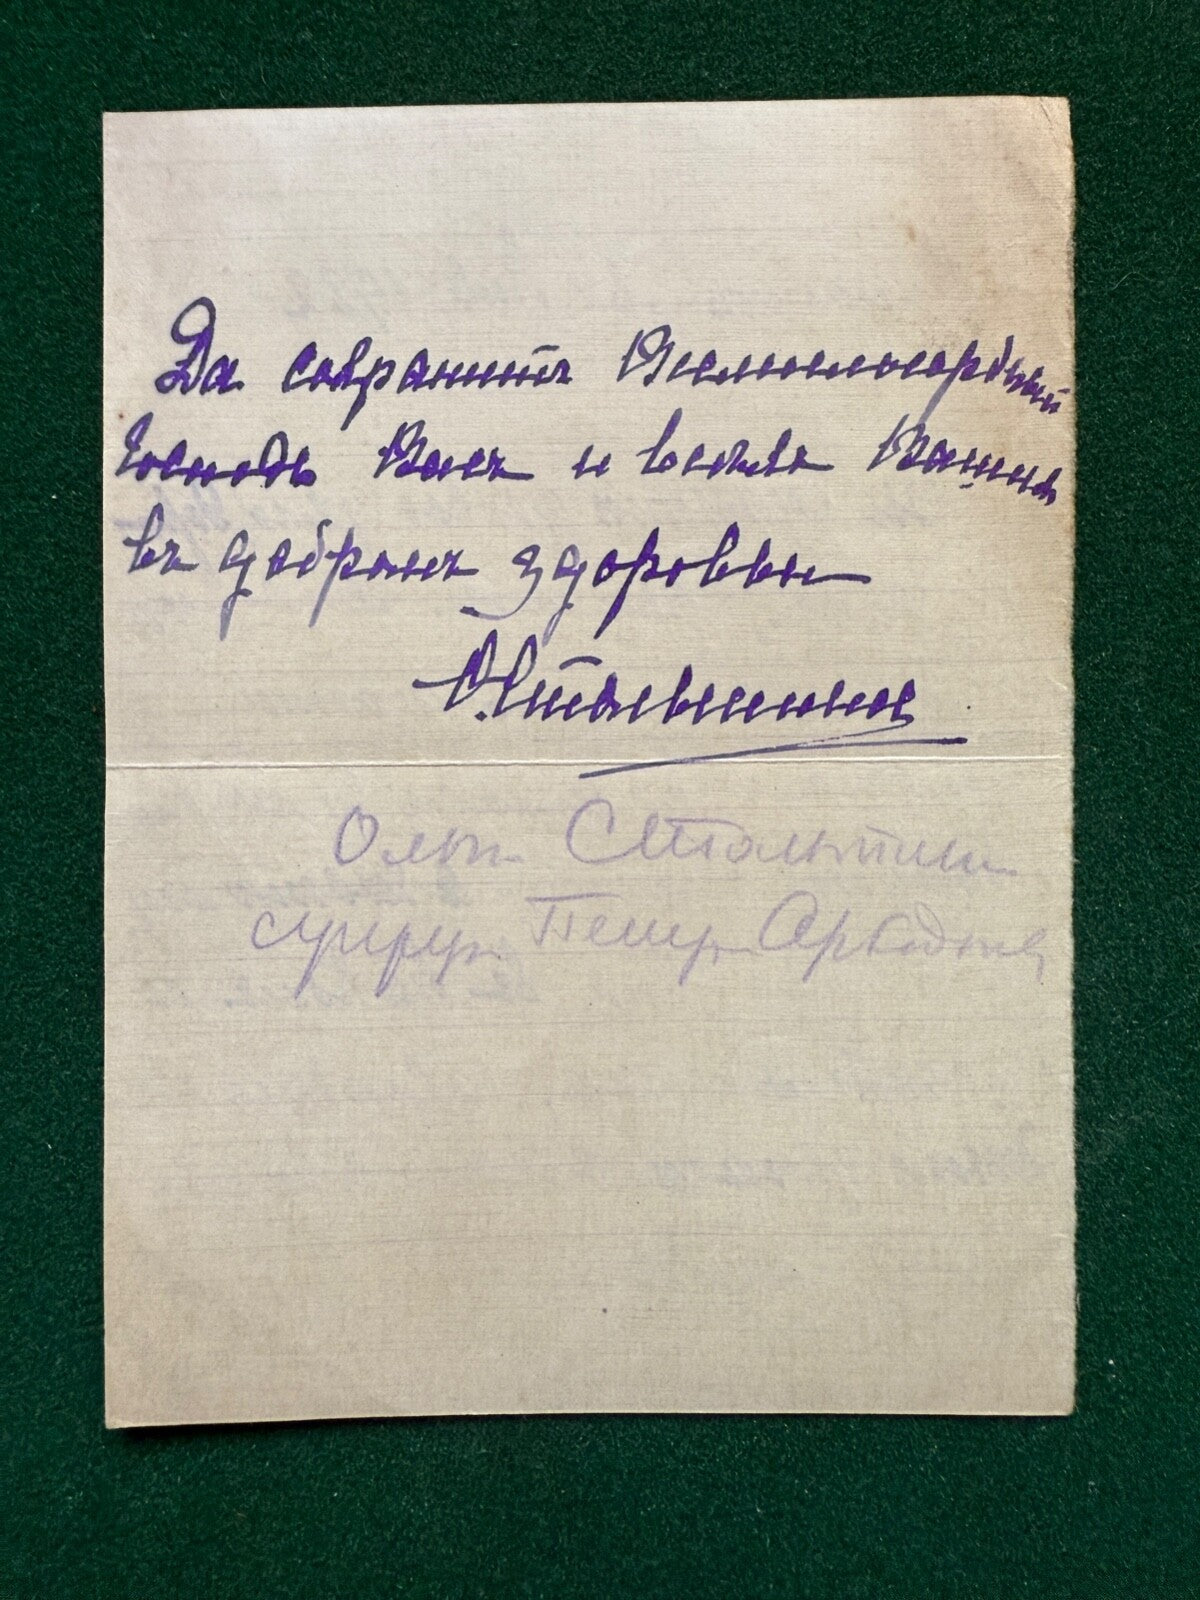 Да сохранитъ Всемилосердный
Господь Васъ и всѣхъ Вашихъ
въ добромъ здоровьи
О. Столыпина
Ольга Столыпина
супруга Петра Аркадьев